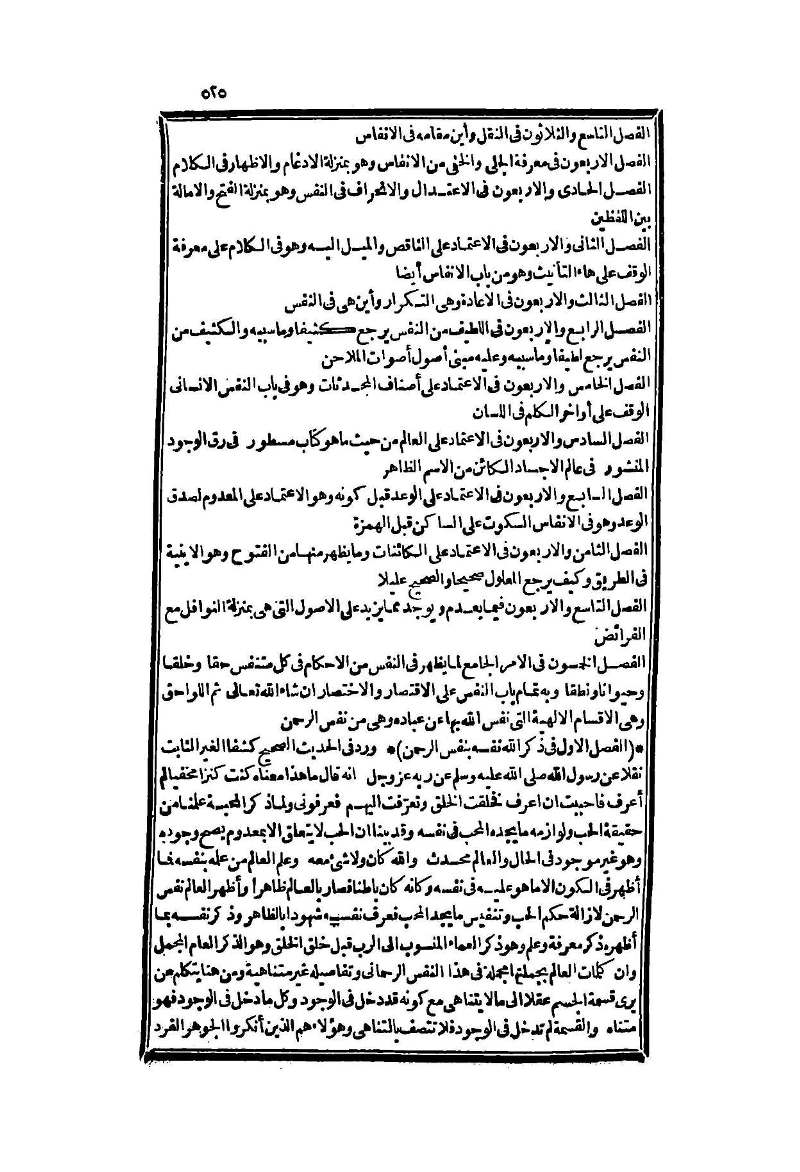 ٥٢٥
الفصل التاسع والثلاثون فى النقل وأين مقامه فى الانفاس
الفصل الاربعون فى معرفة الجلى والخفى من الانفاس وهو بمنزلة الادغام والاظهار فى الكلام
الفصل الحادى والاربعون فى الاعتدال والانحراف فى النفس وهو بمنزلة الفتح والامالة
بين اللفظين
الفصل الثانى والاربعون فى الاعتماد على الناقص والميل اليه وهو فى الكلام على معرفة
الوقف على هاء التأنيث وهو من باب الانفاس أيضا
الفصل الثالث والاربعون فى الاعادة وهى التكرار وأين هى فى النفس
الفصل الرابع والاربعون فى اللطيف من النفس يرجع كثيفا وما سببه والكثيف من
النفس يرجع لطيفا وما سببه وعليه مبنى أصول أصوات الملاحن
الفصل الخامس والاربعون فى الاعتماد على أصناف المحدثات وهو فى باب النفس الانسانى
الوقف على أواخر الكلم فى اللسان
الفصل السادس والاربعون فى الاعتماد على العالم من حيث ما هو كتاب مسطور فى رق الوجود
المنشور فى عالم الاجساد الكائن من الاسم الظاهر
الفصل السابع والاربعون فى الاعتماد على الوعد قبل كونه وهو الاعتماد على المعدوم لصدق
الوعد وهو فى الانفاس السكوت على الساكن قبل الهمزة
الفصل الثامن والاربعون فى الاعتماد على الكائنات وما يظهر منها من الفتوح وهو الاينية
فى الطريق وكيف يرجع المعلول صحيحا والصحيح عليلا
الفصل التاسع والاربعون فيما يعدم ويوجد مما يزيد على الاصول التى هى بمنزلة النوافل مع
الفرائض
الفصل الخمسون فى الامر الجامع لما يظهر فى النفس من الاحكام فى كل متنفس حقا وخلقا
وحيوانا ونطقا وبه تمام باب النفس على الاقتصار والاختصار ان شاء الله تعالى ثم اللواحق
وهى الاقسام الالهية التى نفس الله بها عن عباده وهى من نفس الرحمن
*(الفصل الاول فى ذكر الله نفسه بنفس الرحمن)* ورد فى الحديث الصحيح كشفا الغير الثابت
نقلا عن رسول الله صلى الله عليه وسلم عن ربه عز وجل انه قال ما هذا معناه كنت كنزا مخفيا لم
أعرف فاحببت ان اعرف فخلقت الخلق وتعرفت اليهم فعرفونى ولما ذكر المحبة علمنا من
حقيقة الحب ولوازمه ما يجده المحب فى نفسه وقد بينا ان الحب لا يتعلق الا بمعدوم يصح وجوده
وهو غير موجود فى الحال والعالم محدث والله كان ولا شئ معه وعلم العالم من علمه بنفسه فما
أظهر فى الكون الا ما هو عليه فى نفسه وكانه كان باطنا فصار بالعالم ظاهرا وأظهر العالم نفس
الرحمن لازالة حكم الحب وتنفيس ما يجد المحب فعرف نفسه شهودا بالظاهر وذكر نفسه بما
أظهره ذكر معرفة وعلم وهو ذكر العماء المنسوب الى الرب قبل خلق الخلق وهو الذكر العام المجمل
وان كلمات العالم بجملتها مجملة فى هذا النفس الرحمانى وتفاصيله غير متناهية ومن هنا يتكلم من
يرى قسمة الجسم عقلا الى ما لا يتناهى مع كونه قد دخل فى الوجود وكل ما دخل فى الوجود فهو
متناه والقسمة لم تدخل فى الوجود فلا تتصف بالتناهى وهؤلاء هم الذين أنكروا الجوهر الفرد